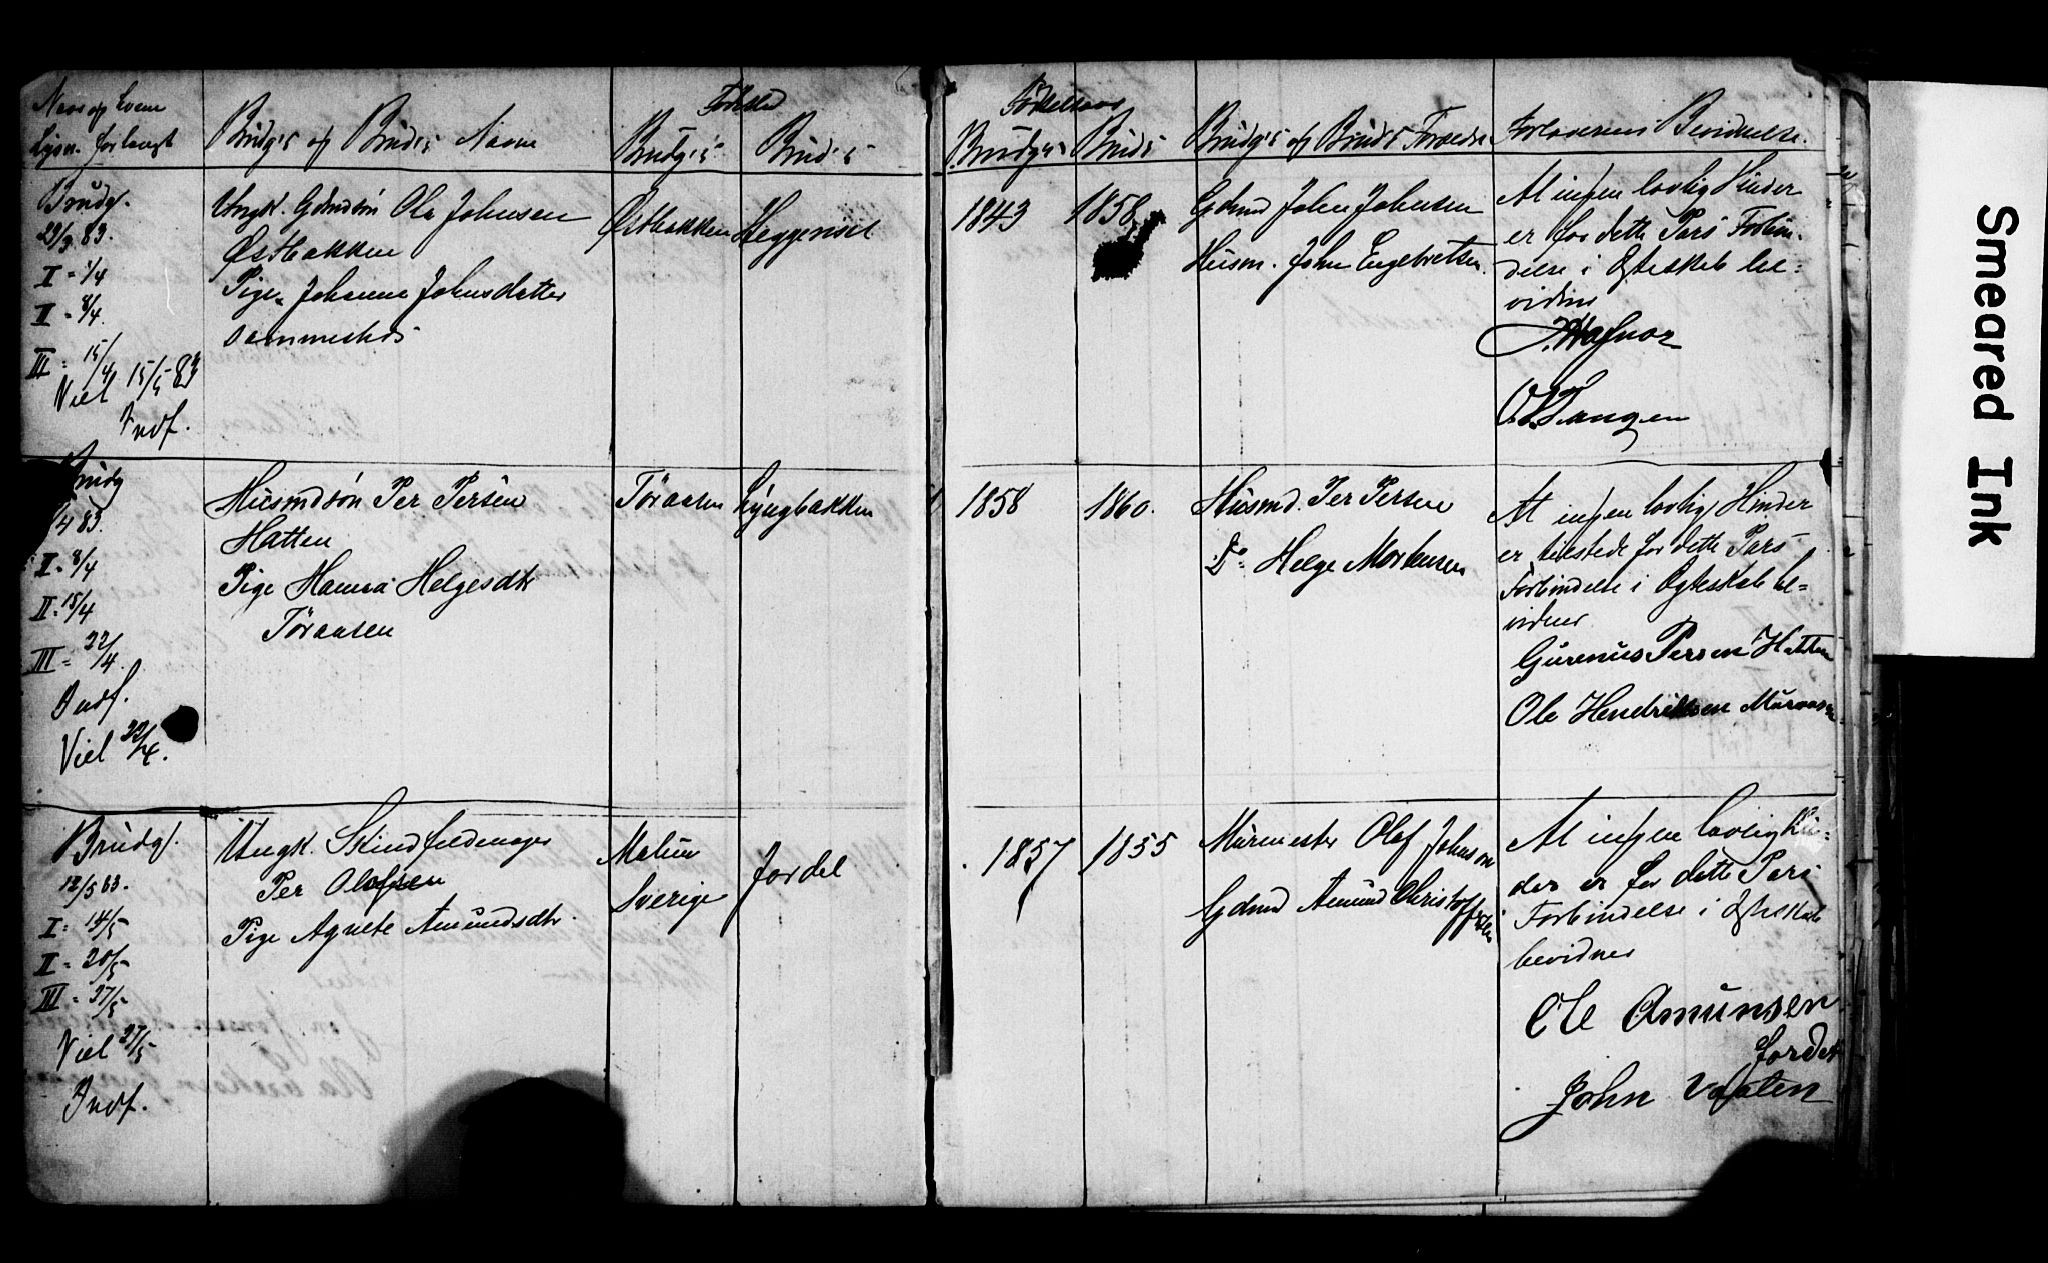 Naar og hvem
Lysn. forlangt
Brudg's og Bruds Navne
Fødested
Brudg's
Bruds
Fødselsaar
Brudg's
Bruds
Brudg's og Bruds Forældre
Forlovernes Bevidnelse.
Brudg.
29/3 83.
I = 1/4
II = 8/4.
III = 15/4
Viel 15/5 83
Indf.
Ungk. Gdmdsøn Ola Johnsen
Østbakken
Pige Johanne Johnsdatter
sammesteds
Østbakken
Heggeriset
1843
1858
Gdmd John Johnsen
Husm. John Engebretsen.
At ingen lovlig Hinder
er for dette Pars Forbin-
delse i Ægteskab be=
vidner
O. T. Tangen
Brudg
/4 83.
I = 8/4
II = 15/4
III = 22/4.
Indf.
Viel 22/4.
Husmdsøn Per Persen
Hatten
Pige Hanna Helgesdtr
Tøraasen
Tøraasen
Lyngbakken
1858
1860.
Husmd. Per Persen
Do Helge Mortensen
At ingen lovlig Hinder
er tilstede for dette Pars
Forbindelse i Ægteskab be=
vidner
Gurenus Persen Hatten
Ole Hendriksen Muraasen
Brudg.
12/5 83.
I = 14/5
II = 20/5
III = 27/5
Viel 27/5
Indf.
Ungk. Skindfeldmager
Per Olafsen
Pige Agnete Amundsdtr.
Malun
Sverige
Jordet
1857
1855
Murmester Olaf Johnson
Gdmd Amund Christoffersen
At ingen lovlig Hin-
der er for dette Pars
Forbindelse i Ægteskab
bevidner
Ole Amunsen
Jordet
John Vesten
Smeared Ink